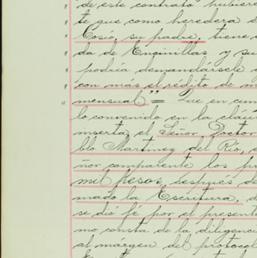 de este contrato hubiere
te que como heredera d
Cosío, su padre, tiene
da de Enquinillas y su
podría demandársele
con más el rédito de m
mensual" = Que en cum
lo convenido en la cláu
inserta, el Señor Doctor
blo Martínez del Río,
ñor compareciente los
mil pesos, después de
mado la Escritura,
se dio fé, por el presente
mo consta de la diligencia
al márgen del protocol